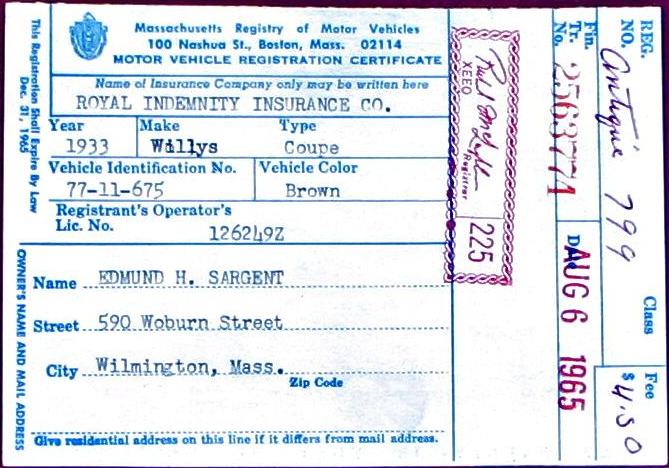 Massachusetts Registry of Motor Vehicles
100 Nashua St., Boston, Mass. 02114
MOTOR VEHICLE REGISTRATION CERTIFICATE
Name of Insurance Company only may be written here
ROYAL INDEMNITY INSURANCE CO.
Year Make Type
1933 Willys Coupe
Vehicle Identification No. Vehicle Color
77-11-675 Brown
Registrant's Operator's
Lic. No. 126249Z
Name EDMUND H. SARGENT
Street 590 Woburn Street
City Wilmington, Mass.
Zip Code
Give residential address on this line if it differs from mail address.
This Registration Shall Expire By Law
Dec. 31, 1965
OWNER'S NAME AND MAIL ADDRESS
XEEO
Registrar
225
Fin.
Tr.
No. 2563771
Date AUG 6 1965
REG.
NO. Antique 799
Class
Fee
$4.50